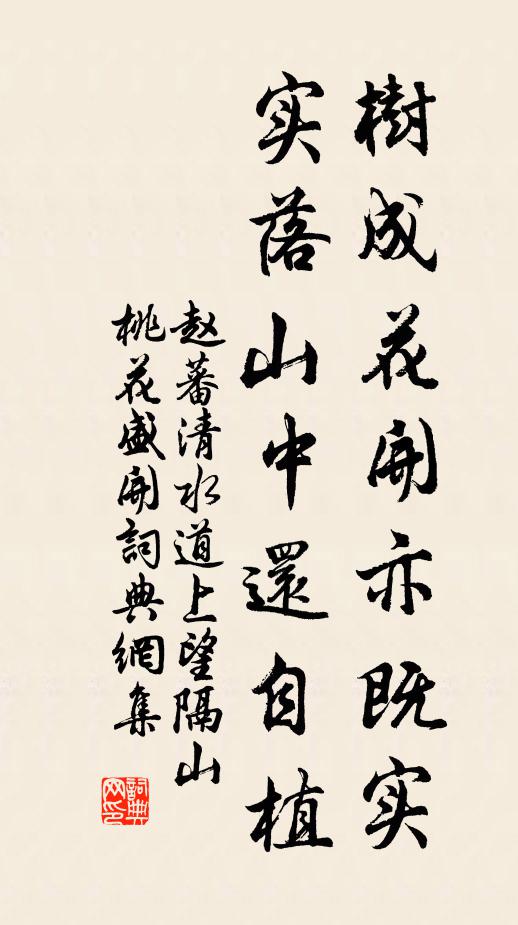 樹成花開亦既实
实落山中還自植
赵蕃清水道上望隔山
桃花盛開詞典網集
詞典网印